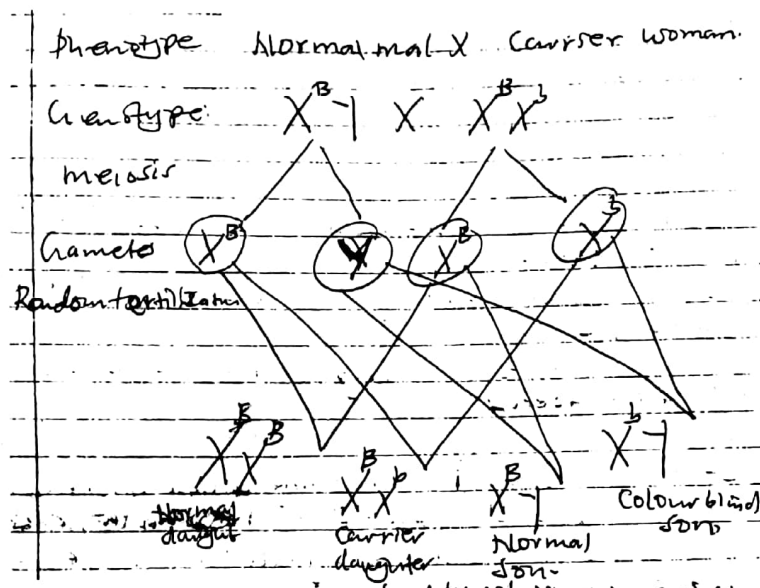 Phenotype Normal mal X Carrier woman.
Genotype: X^B Y X X^B X^b
meiosis
Gamete X^B Y X^B X^b
Random fertilization
X^B X^B X^B X^b X^B Y X^b Y
Normal daught Carrier daughter Normal Son. Colour blind Son